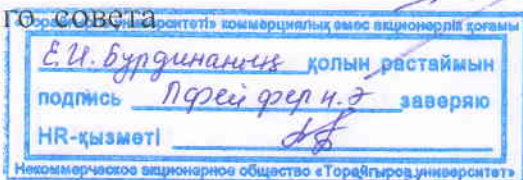 го совета
«Торайғыров университеті» коммерциялық емес акционерлік қоғамы
Е.И. Бурдинаның қолын растаймын
подпись Пфейфер Н.Э заверяю
HR-қызметі
Некоммерческое акционерное общество «Торайғыров университет»